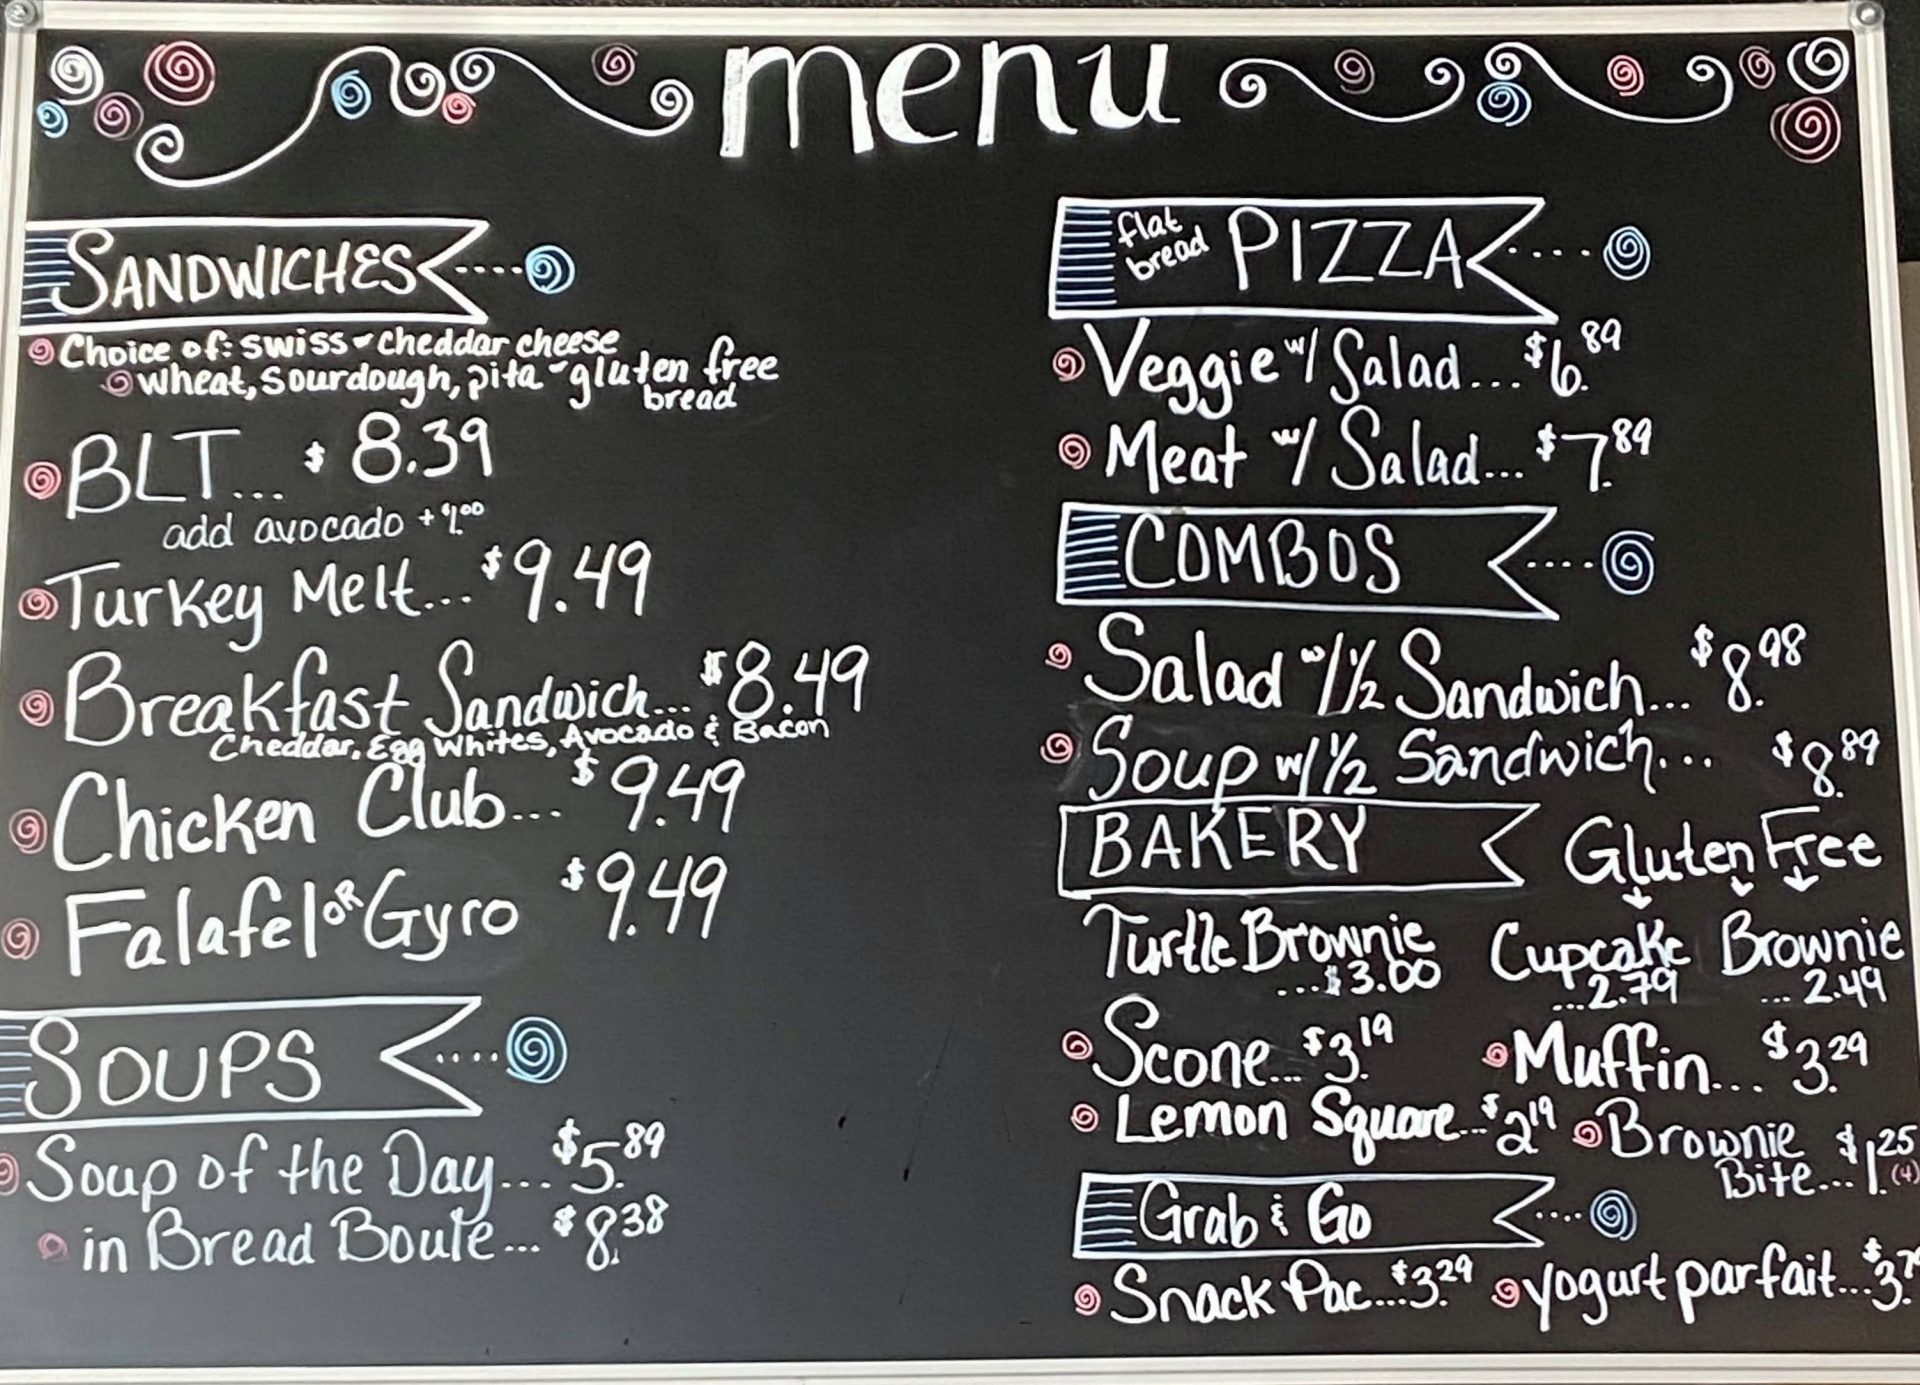 menu
SANDWICHES
Choice of: swiss - cheddar cheese
wheat, sourdough, pita - gluten free
bread
BLT... $8.39
add avocado +$1.00
Turkey Melt... $9.49
Breakfast Sandwich... $8.49
Cheddar, Egg Whites, Avocado & Bacon
Chicken Club... $9.49
Falafel OR Gyro $9.49
SOUPS
Soup of the Day... $5.89
in Bread Boule... $8.38
flat bread PIZZA
Veggie w/ Salad... $6.89
Meat w/ Salad... $7.89
COMBOS
Salad w/ 1/2 Sandwich... $8.98
Soup w/ 1/2 Sandwich... $8.89
BAKERY
Gluten Free
Turtle Brownie ...$3.00
Cupcake ...2.79
Brownie ...2.49
Scone... $3.19
Muffin... $3.29
Lemon Square... $2.19
Brownie Bite... $1.25 (4)
Grab & Go
Snack Pac... $3.29
yogurt parfait... $3.7